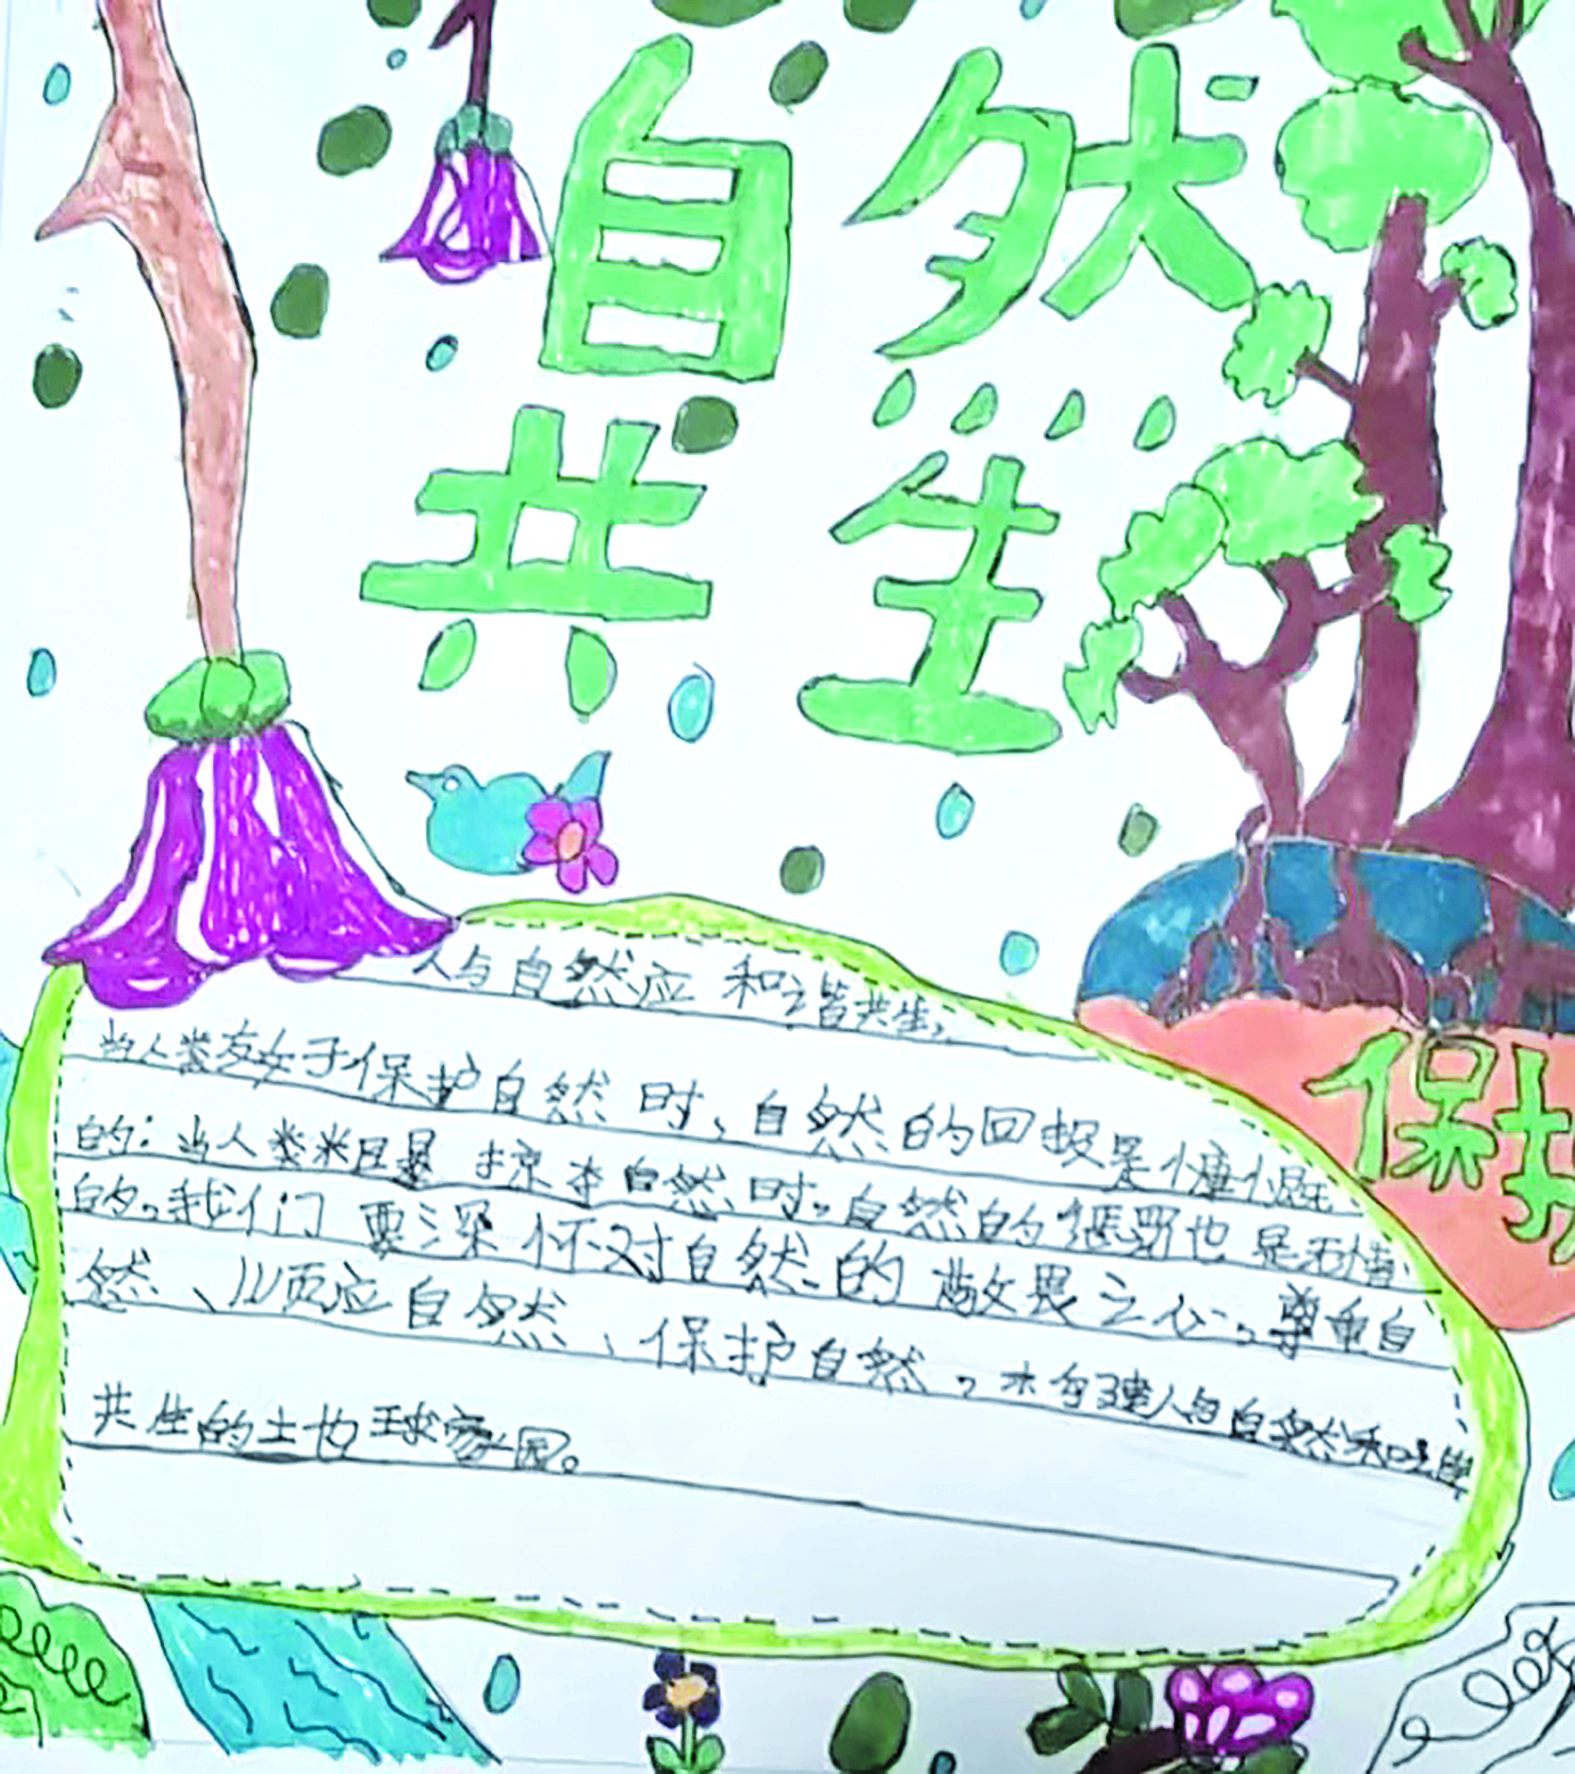 自然
共生
人与自然应和谐共生,
当人类友好保护自然时,自然的回报是慷慨
的;当人类粗暴掠夺自然时,自然的惩罚也是无情
的。我们要深怀对自然的敬畏之心,尊重自
然、顺应自然、保护自然,构建人与自然和谐
共生的地球家园。
保护